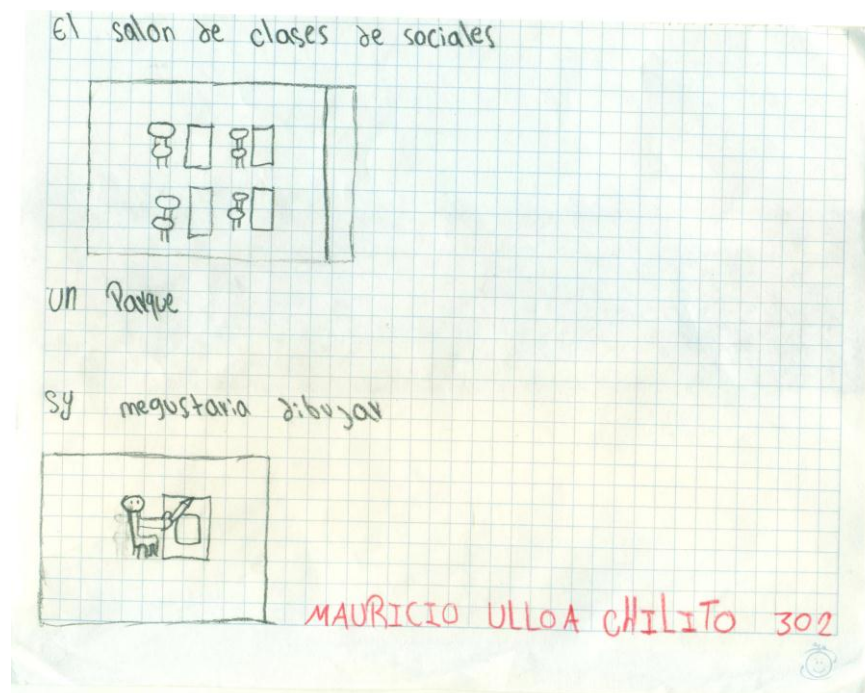 El salon de clases de sociales
un Parque
sy megustaria dibujar
MAURICIO ULLOA CHILITO 302